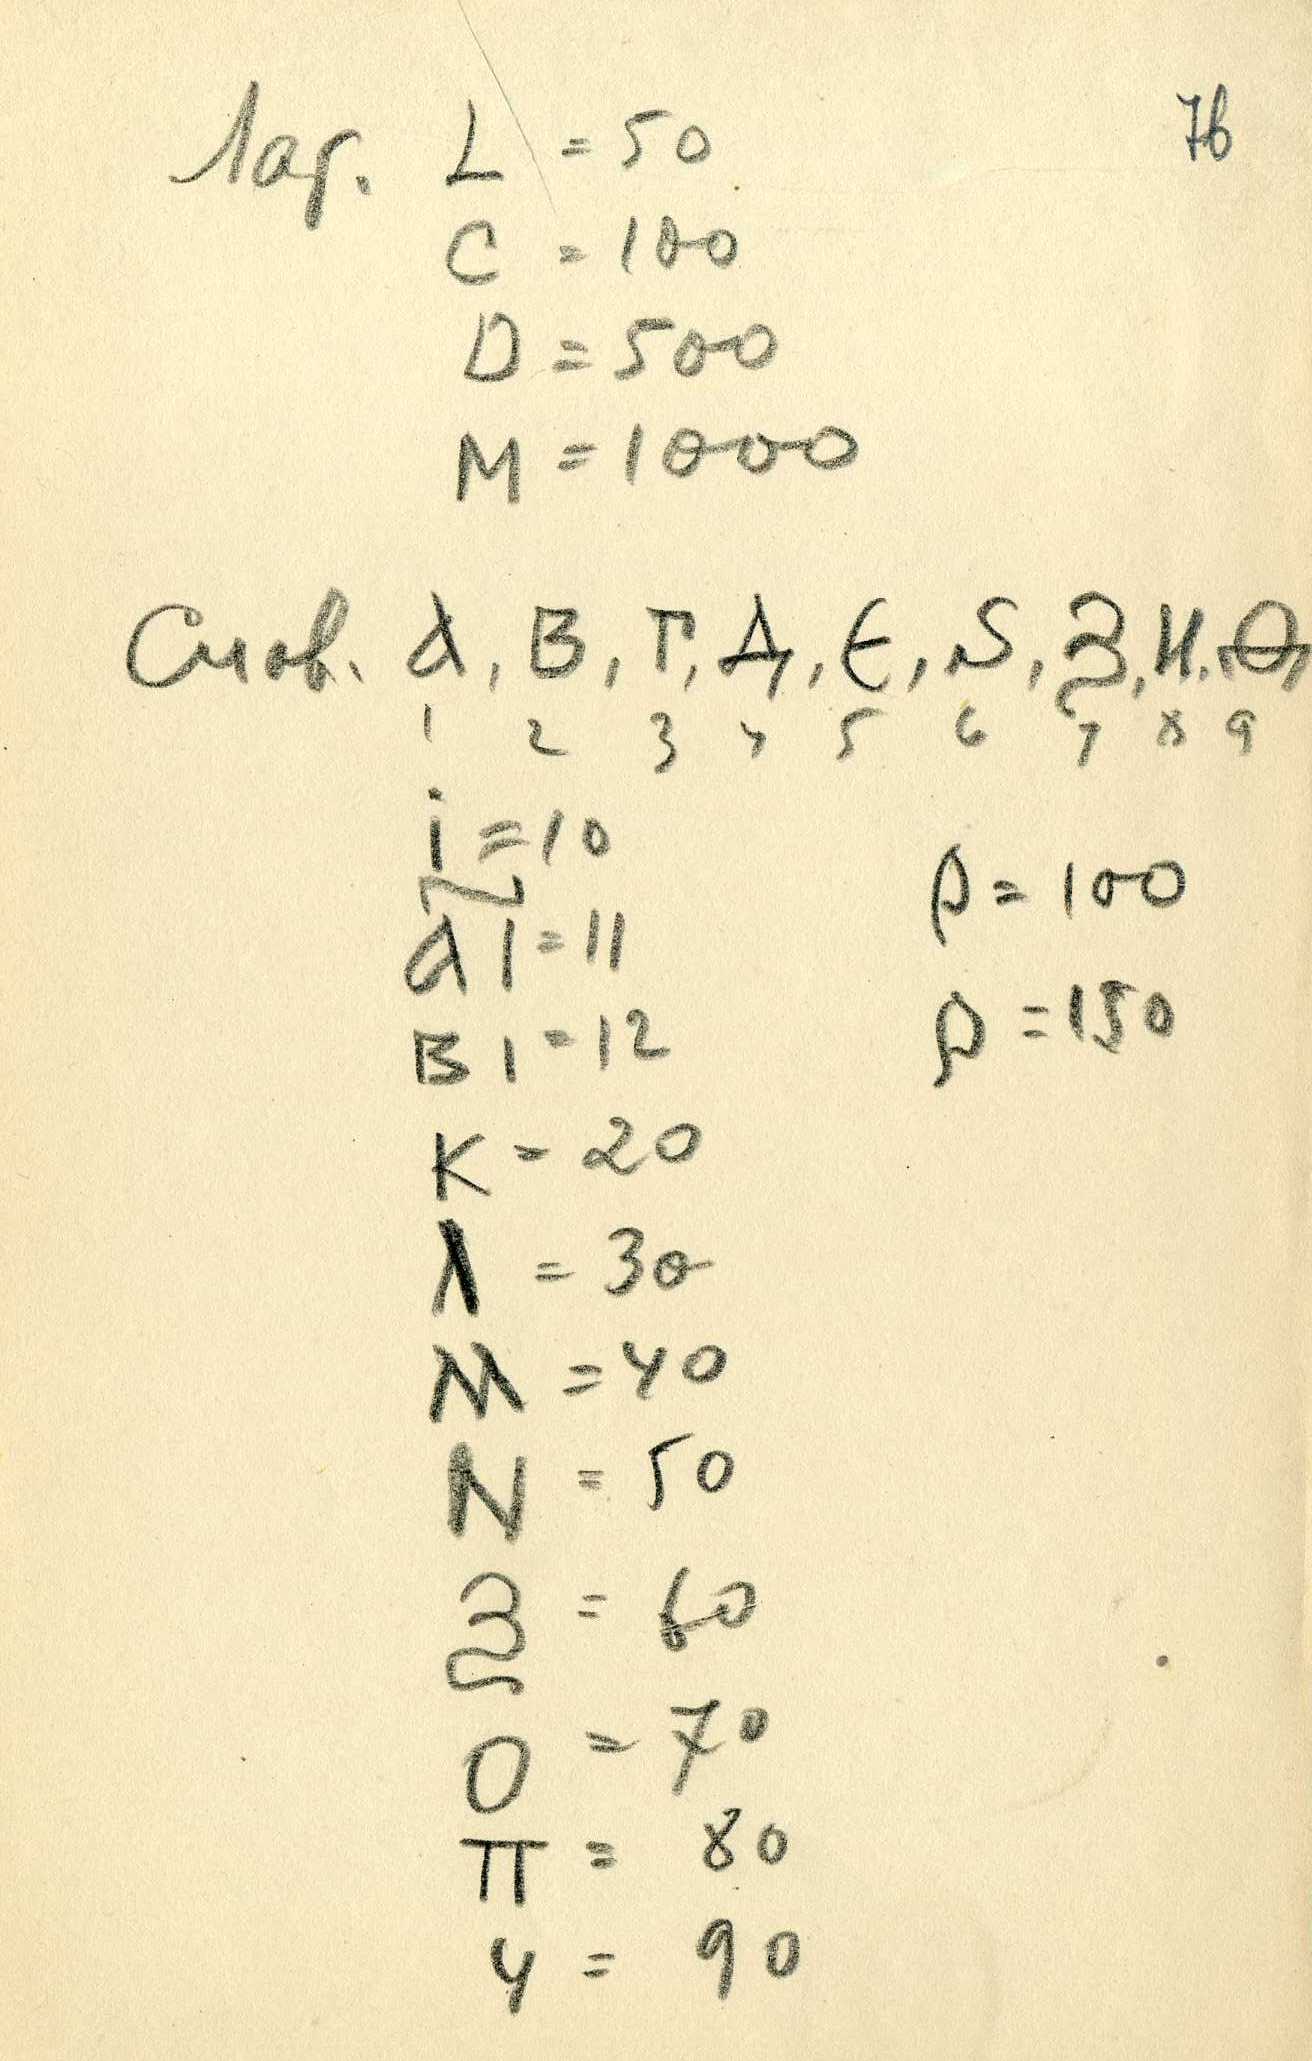 76
Лат. L = 50
C = 100
D = 500
M = 1000
Слов. А, В, Г, Д, Є, Ѕ, З, И, Ѳ,
1 2 3 4 5 6 7 8 9
i = 10
АІ = 11
ВІ = 12
К = 20
Л = 30
М = 40
N = 50
Ѯ = 60
О = 70
П = 80
Ч = 90
Р = 100
Р = 150